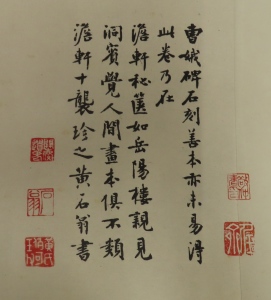 曹娥碑石刻善本亦未易得
此卷乃在
澹軒秘篋如岳陽樓親見
洞賓覺人間畫本俱不類
澹軒十襲珍之黄石翁書